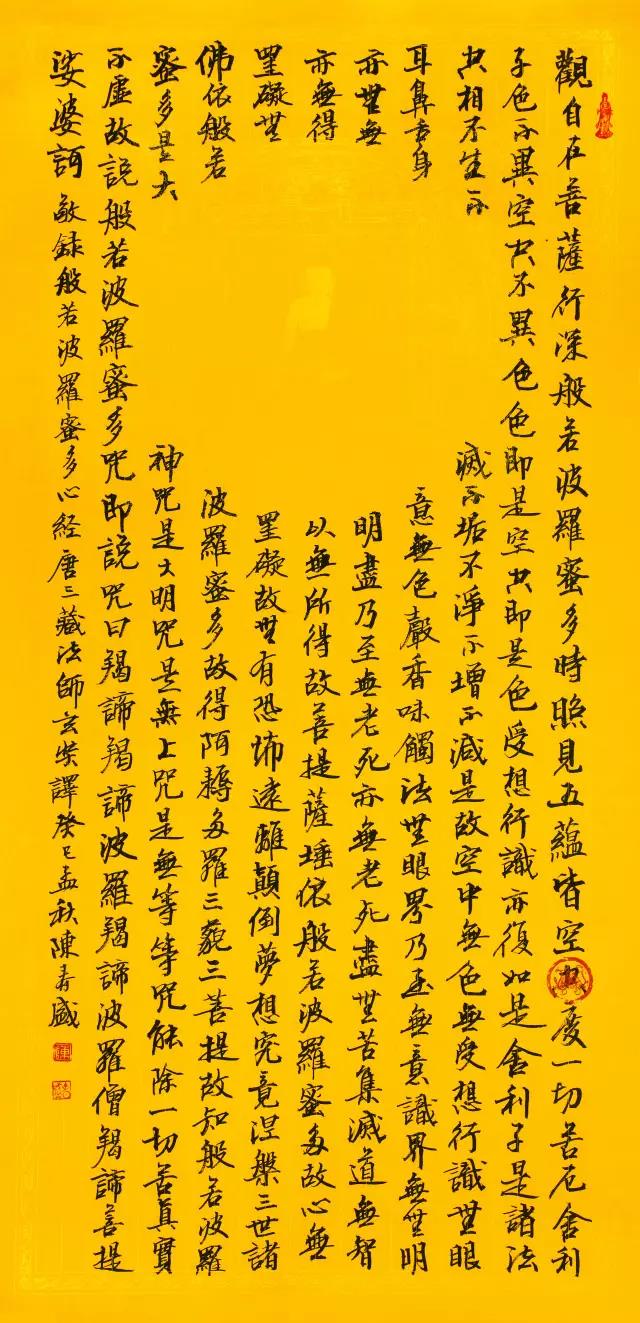 觀自在菩薩行深般若波羅蜜多時照見五蘊皆空度一切苦厄舍利
子色不異空空不異色色即是空空即是色受想行識亦復如是舍利子是諸法
空相不生不滅不垢不淨不增不減是故空中無色無受想行識無眼
耳鼻舌身意無色聲香味觸法無眼界乃至無意識界無無明
亦無無明盡乃至無老死亦無老死盡無苦集滅道無智
亦無得以無所得故菩提薩埵依般若波羅蜜多故心無
罣礙無罣礙故無有恐怖遠離顛倒夢想究竟涅槃三世諸
佛依般若波羅蜜多故得阿耨多羅三藐三菩提故知般若波羅
蜜多是大神咒是大明咒是無上咒是無等等咒能除一切苦真實
不虛故說般若波羅蜜多咒即說咒曰羯諦羯諦波羅羯諦波羅僧羯諦菩提
娑婆訶 敬錄般若波羅蜜多心経唐三藏法師玄奘譯癸巳孟秋陳盛